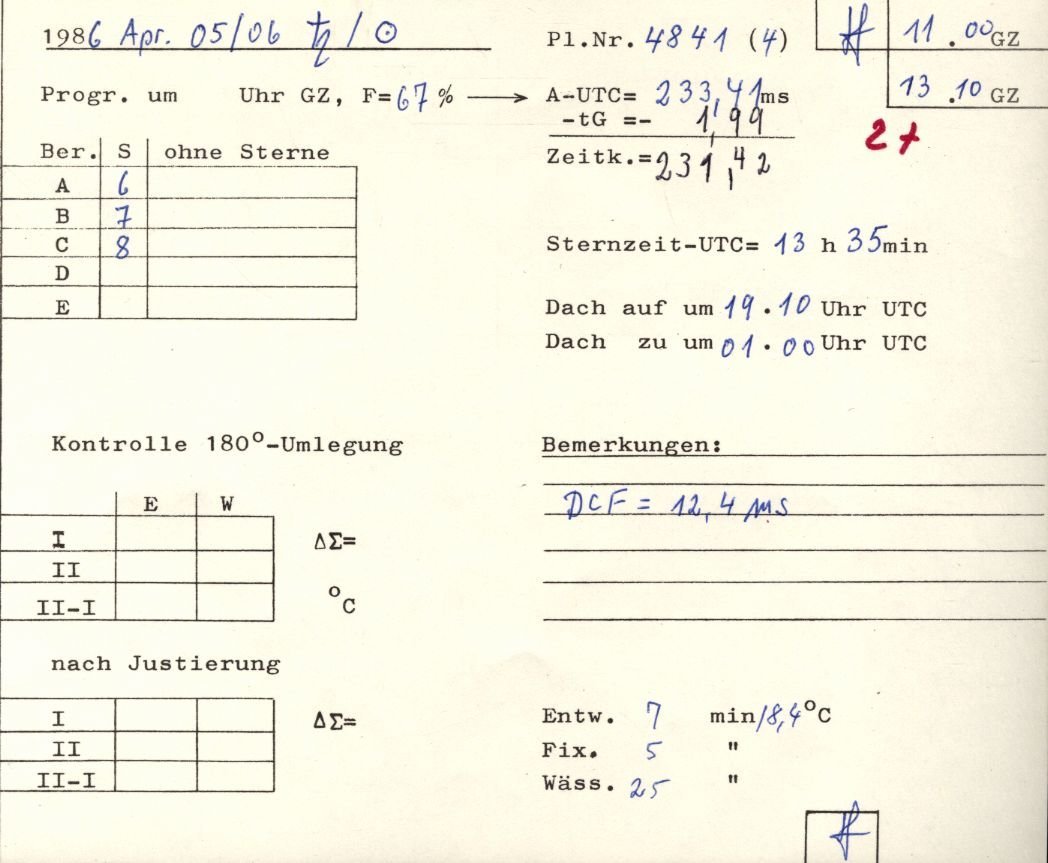 1986 Apr. 05/06 ♄ / ☉
Pl.Nr. 4841 (4)
11.00 GZ
13.10 GZ
2+
Progr. um Uhr GZ, F=67% → A-UTC= 233,41ms
-tG =- 1,99
Zeitk.=231,42
Ber. S ohne Sterne
A 6
B 7
C 8
D
E
Sternzeit-UTC= 13 h 35min
Dach auf um 19.10 Uhr UTC
Dach zu um 01.00 Uhr UTC
Kontrolle 180°-Umlegung
E W
I ΔΣ=
II
II-I °C
nach Justierung
I ΔΣ=
II
II-I
Bemerkungen:
DCF = 12,4 ms
Entw. 7 min/18,4°C
Fix. 5 "
Wäss. 25 "